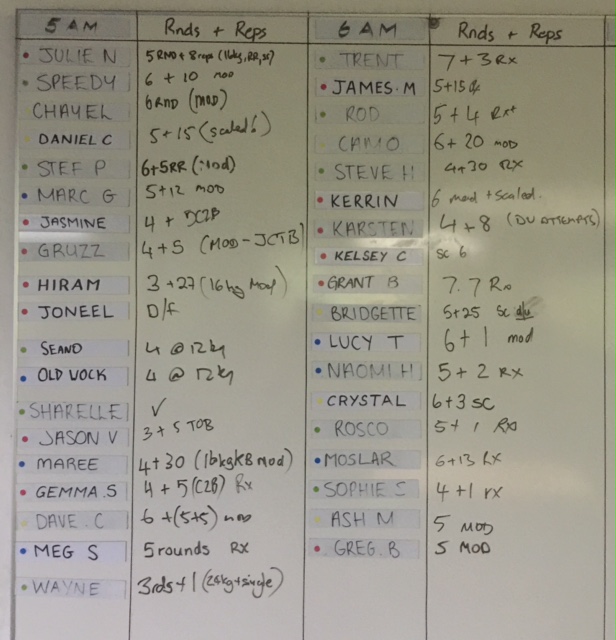 5 AM Rnds + Reps
JULIE N 5 RND + 8 reps (16kg, RR, sc)
SPEEDY 6 + 10 mod
CHAYEL 6 RND (MOD)
DANIEL C 5 + 15 (scaled 6)
STEF P 6+5RR (Mod)
MARC G 5+12 MOD
JASMINE 4 + DC2B
GRUZZ 4 + 5 (MOD - JCTB)
HIRAM 3 + 27 (16kg Mod)
JONEEL D/F
SEAND 4 @ 12kg
OLD UOCK 4 @ 12kg
SHARELLE ✓
JASON V 3 + 5 TOB
MAREE 4+30 (16kgKB Mod)
GEMMA.S 4 + 5 (C2B) Rx
DAVE.C 6 + (5+5) mod
MEG S 5 rounds RX
WAYNE 3rds + 1 (24kg + single)
6 AM Rnds + Reps
TRENT 7 + 3 Rx
JAMES.M 5+15
ROD 5 + 4 Rx+
CAMO 6 + 20 MOD
STEVE H 4+30 RX
KERRIN 6 mod + scaled.
KARSTEN 4 + 8 (DU ATTEMPTS)
KELSEY C SC 6
GRANT B 7.7 Rx
BRIDGETTE 5+25 sc du
LUCY T 6+1 mod
NAOMI H 5 + 2 RX
CRYSTAL 6+3 SC
ROSCO 5 + 1 RX
MOSLAR 6+13 RX
SOPHIE S 4+1 rx
ASH M 5 MOD
GREG.B 5 MOD